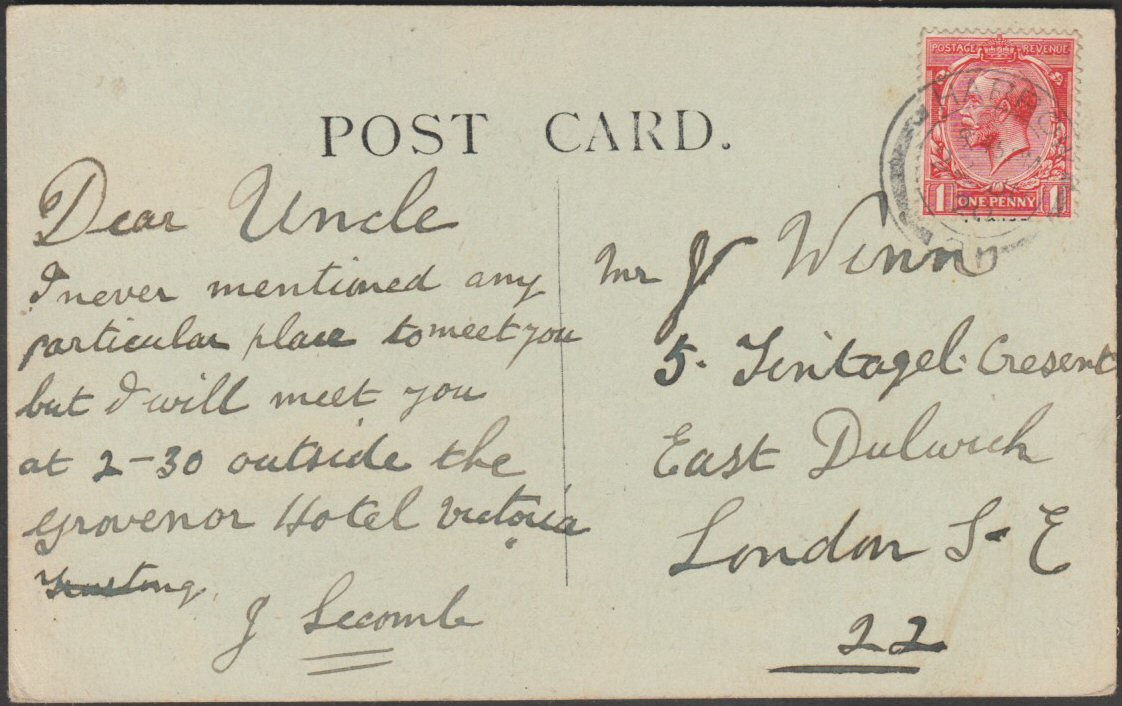 POSTAGE REVENUE
1 ONE PENNY 1
POST CARD.
Dear Uncle
I never mentioned any
particular place to meet you
but I will meet you
at 2-30 outside the
grovenor Hotel Victoria
J Secomb
Mr J Winn
5. Tintagel. Cresent
East Dulwich
London S. E
22